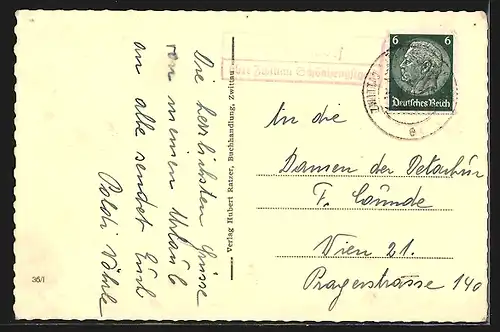 Die herzlichsten Grüsse
von meinem Urlaub
an alle sendet Euch
Poldi
Verlag Hubert Ratzer, Buchhandlung, Zwittau
36/I
über Zwittau
ZWITTAU
e
6 6
Deutsches Reich
An die
Damen der
F.
Wien 21.
Pragerstrasse 140